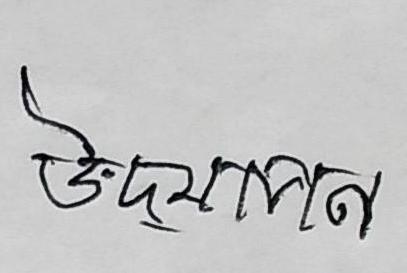 উদ্‌যাপন